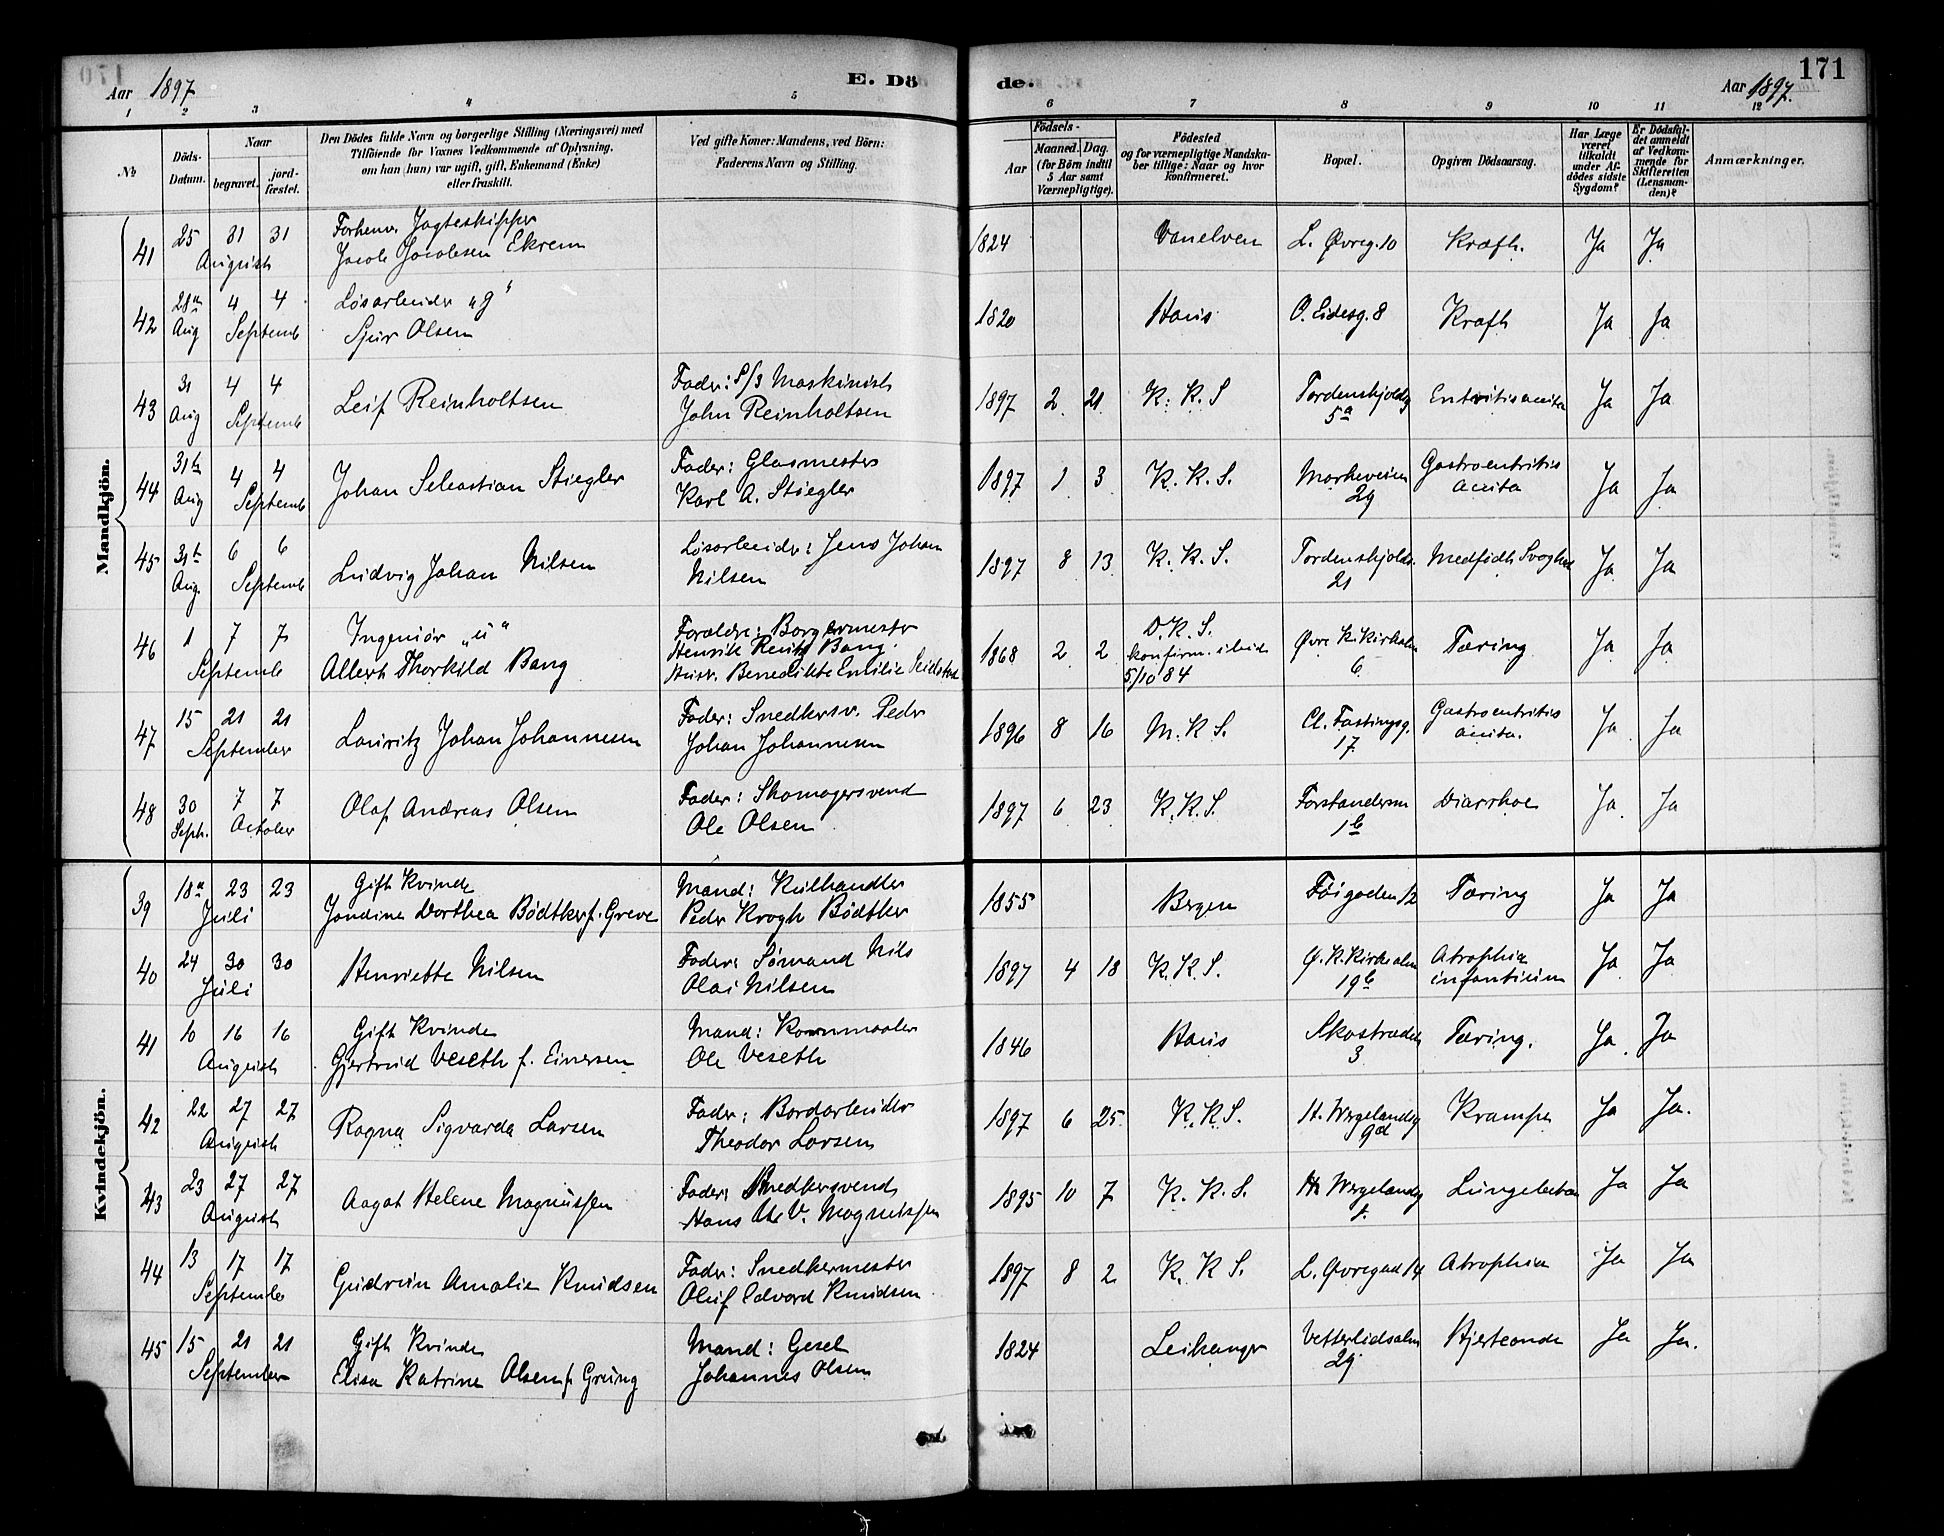 Aar 1897
E. Dö
de.
Aar 1897.
171
1 2 3 4 5 6 7 8 9 10 11 12
No
Döds-Datum.
Naar
begravet.
jord-fæstet.
Den Dödes fulde Navn og borgerlige Stilling (Næringsvei) med
Tilföiende for Voxnes Vedkommende af Oplysning,
om han (hun) var ugift, gift, Enkemand (Enke)
eller fraskilt.
Ved gifte Koner: Mandens, ved Börn:
Faderens Navn og Stilling.
Födsels-
Aar
Maaned. Dag.
(for Börn indtil
5 Aar samt
Værnepligtige).
Födested
og for værnepligtige Mandska-
ber tillige: Naar og hvor
konfirmeret.
Bopæl.
Opgiven Dödsaarsag.
Har Læge
været
tilkaldt
under Af-
dödes sidste
Sygdom?
Er Dödsfal-
det anmeldt
af Vedkom-
mende for
Skifteretten
(Lensman-
den)?
Anmærkninger.
Mandkjön.
41 25 31 31 Forhenv. Jagteskipper 1824 Vanelven L. Øvreg. 10 Kræft. Ja Ja
August Jacob Jacobsen Ekrem
42 28 4 4 Løsarbeider "g" 1820 Haus O. Eidesg. 8 Kræft Ja Ja
Aug Septemb Sjur Olsen
43 31 4 4 Leif Reinholtsen Fader: S/S Maskinist 1897 2 21 K. K. S Tordenskjoldsg Ja Ja
Aug Septemb John Reinholtsen 5a
44 31te 4 4 Johan Sebastian Stiegler Fader: Glasmester 1897 1 3 K. K. S. Markeveien Ja Ja
Aug Septemb Karl A. Stiegler 29 acuta
45 31te 6 6 Ludvig Johan Nilsen Løsarbeider: Jens Johan 1897 8 13 K. K. S. Tordenskjolds. Medfødt Svaghed Ja Ja
Aug. Septemb Nilsen 21
46 1 7 7 Ingeniør "u" Forældre: Borgermester 1868 2 2 D. K. S. Tæring Ja Ja
Septemb Allert Thorkild Bang Henrik Bang. konfirm. 6
Hustr. Benedikte Emilie 5/10 84
47 15 21 21 Lauritz Johan Johannesen Fader: Snedkersv. Peder 1896 8 16 M. K S. Cl. Fastingsg. Ja Ja
September Johan Johannesen 17 acuta.
48 30 7 7 Olaf Andreas Olsen Fader: Skomagersvend 1897 6 23 K. K. S. Forstandersm Diarrhoe Ja Ja
Sept. October Ole Olsen 1b
Kvindekjön.
39 18 23 23 Gift Kvinde Mand: Kulhandler 1855 Bergen 12 Tæring Ja Ja
Juli Jondine Dorthea Bødtker f. Greve Peder Krogh Bødtker
40 24 30 30 Henriette Nilsen Fader: Sømand Nils 1897 4 18 K. K S. Ø. K. Kirkealm Atrophia Ja Ja
Juli Olai Nilsen 19b infantium
41 10 16 16 Gift Kvinde Mand: Kornmaaler 1846 Haus Skostrædet Tæring. Ja Ja
August Gjertrud Veseth f. Einersen Ole Veseth 3
42 22 27 27 Ragna Sigvarda Larsen Fader: Bordarbeider 1897 6 25. K. K S. H. Wergelandsg Krampe Ja Ja.
August Theodor Larsen 9d
43 23 27 27 Aagot Helene Magnussen Fader: Snedkersvend 1895 10 7 K. K. S. H. Wergelandsg Ja Ja
August Hans V. Magnussen
44 13 17 17 Gudrun Amalie Knudsen Fader: Snedkermester 1897 8 2 K. K S. L. Øvregad 14 Atrophia Ja Ja
September Oluf Edvard Knudsen
45 15 21 21 Gift Kvinde Mand: Gesel 1824 Leikanger Vetterlidsalm Hjerteonde Ja Ja.
September Elisa Katrine Olsen f. Grung Johannes Olsen 29